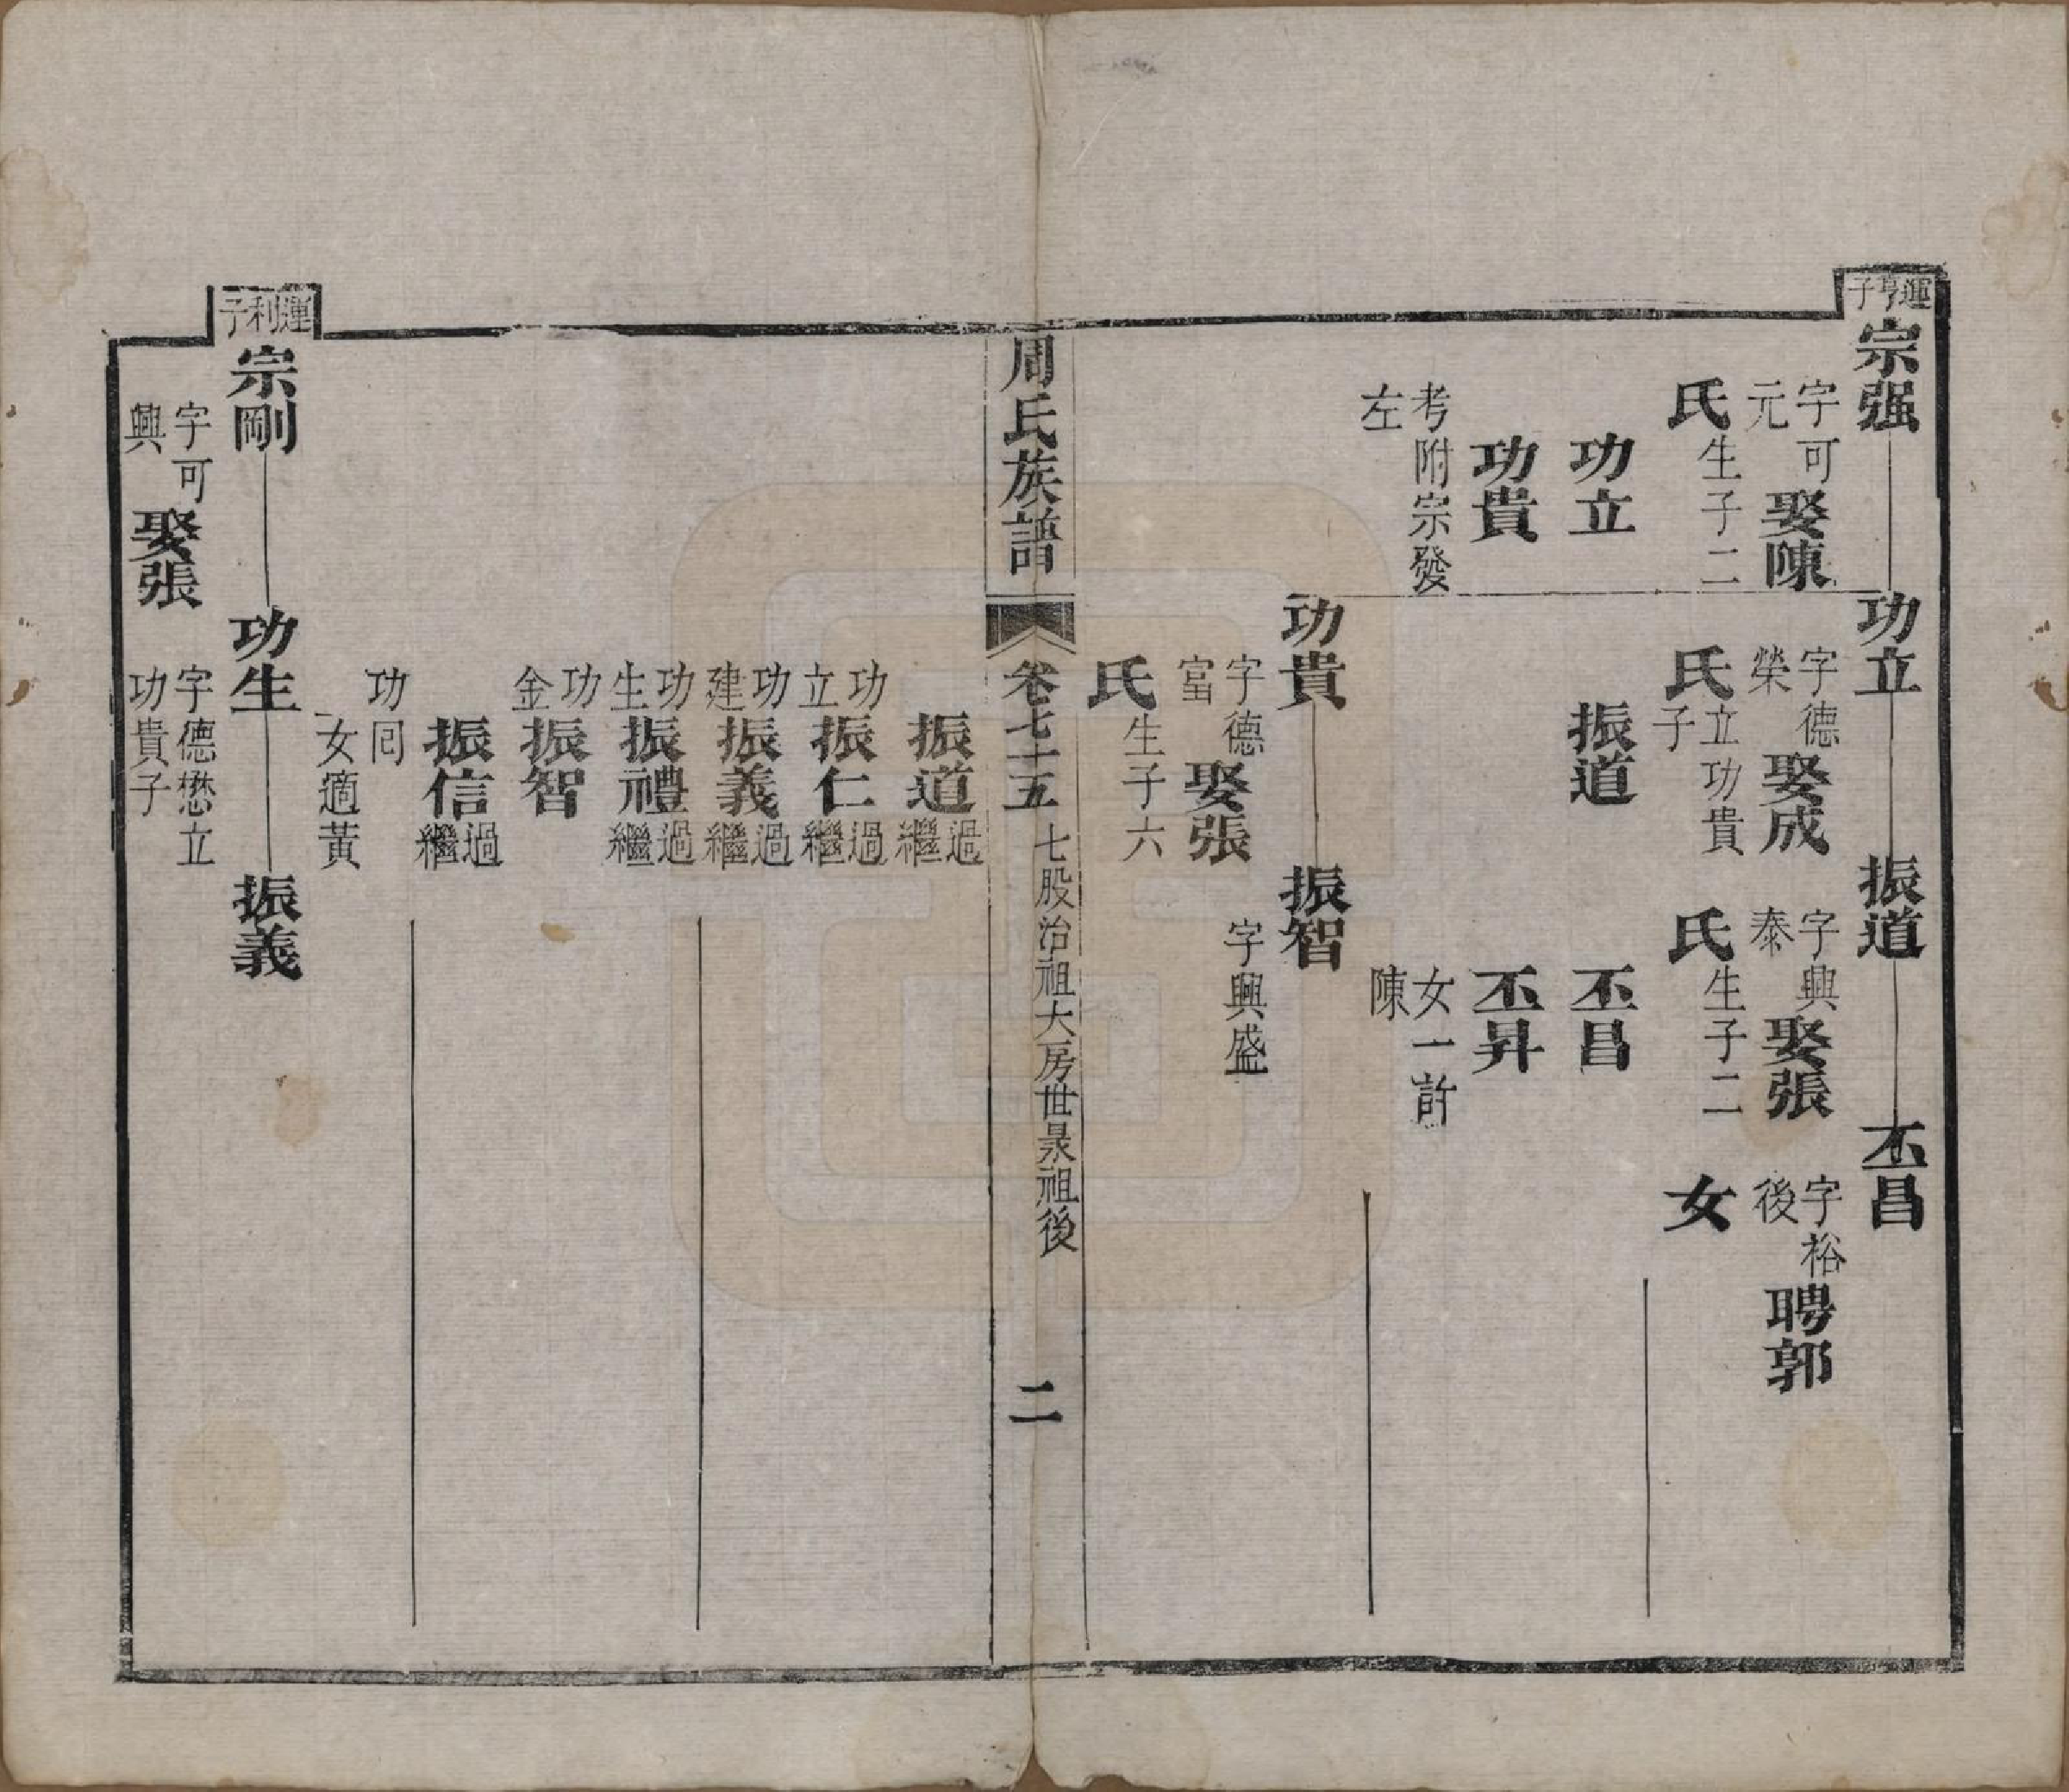 運亨子
宗强
功立
振道
丕昌
字可元
娶陳氏
生子二
字德榮
娶成氏
立功貴子
字興泰
娶張氏
生子二
字裕後
聘郭女
功立
振道
丕昌
功貴
丕昇
考附宗發左
女一許陳
功貴
振智
字德富
娶張氏
生子六
字興盛
周氏族譜
卷七十五
七股治祖大房世泉祖後
二
振道
過繼功立
振仁
過繼功建
振義
過繼功生
振禮
過繼功金
振智
振信
過繼功囘
女適黃
運利子
宗剛
功生
振義
字可興
娶張
字德懋立功貴子